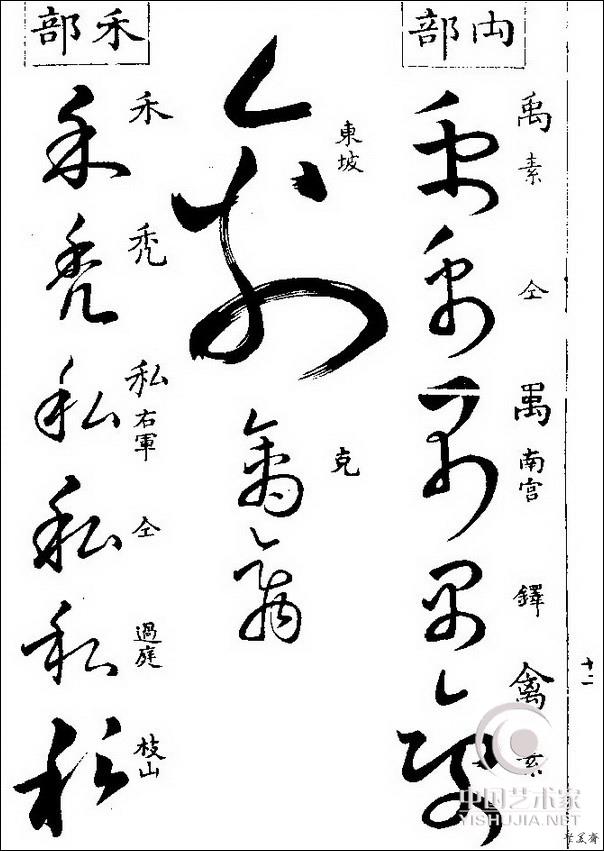 禸部
禹 素
仝
禺 南宮
鐸
禽 素
東坡
克
禾部
禾
禿
私 右軍
仝
過庭
枝山
十二
中国艺术家
YISHUJIA.NET